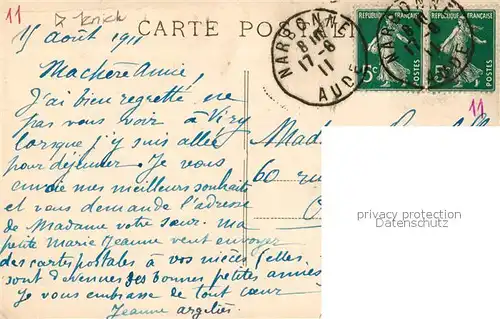 11
CARTE POSTALE
15 août 1911
NARBONNE
8 M
17-8
11
AUDE
REPUBLIQUE FRANÇAISE
5c
POSTES
REPUBLIQUE FRANÇAISE
5c
POSTES
11
Ma chère Amie,
J'ai bien regretté ne
pas vous voir à Viry
lorsque j'y suis allée
pour déjeuner. Je vous
envoie mes meilleurs souhaits
et vous demande l'adresse
de Madame votre sœur. Ma
petite Marie Jeanne veut envoyer
des cartes postales à vos nièces (elles
sont devenues des bonnes petites amies
Je vous embrasse de tout cœur
Jeanne
60 rue
privacy protection
Datenschutz